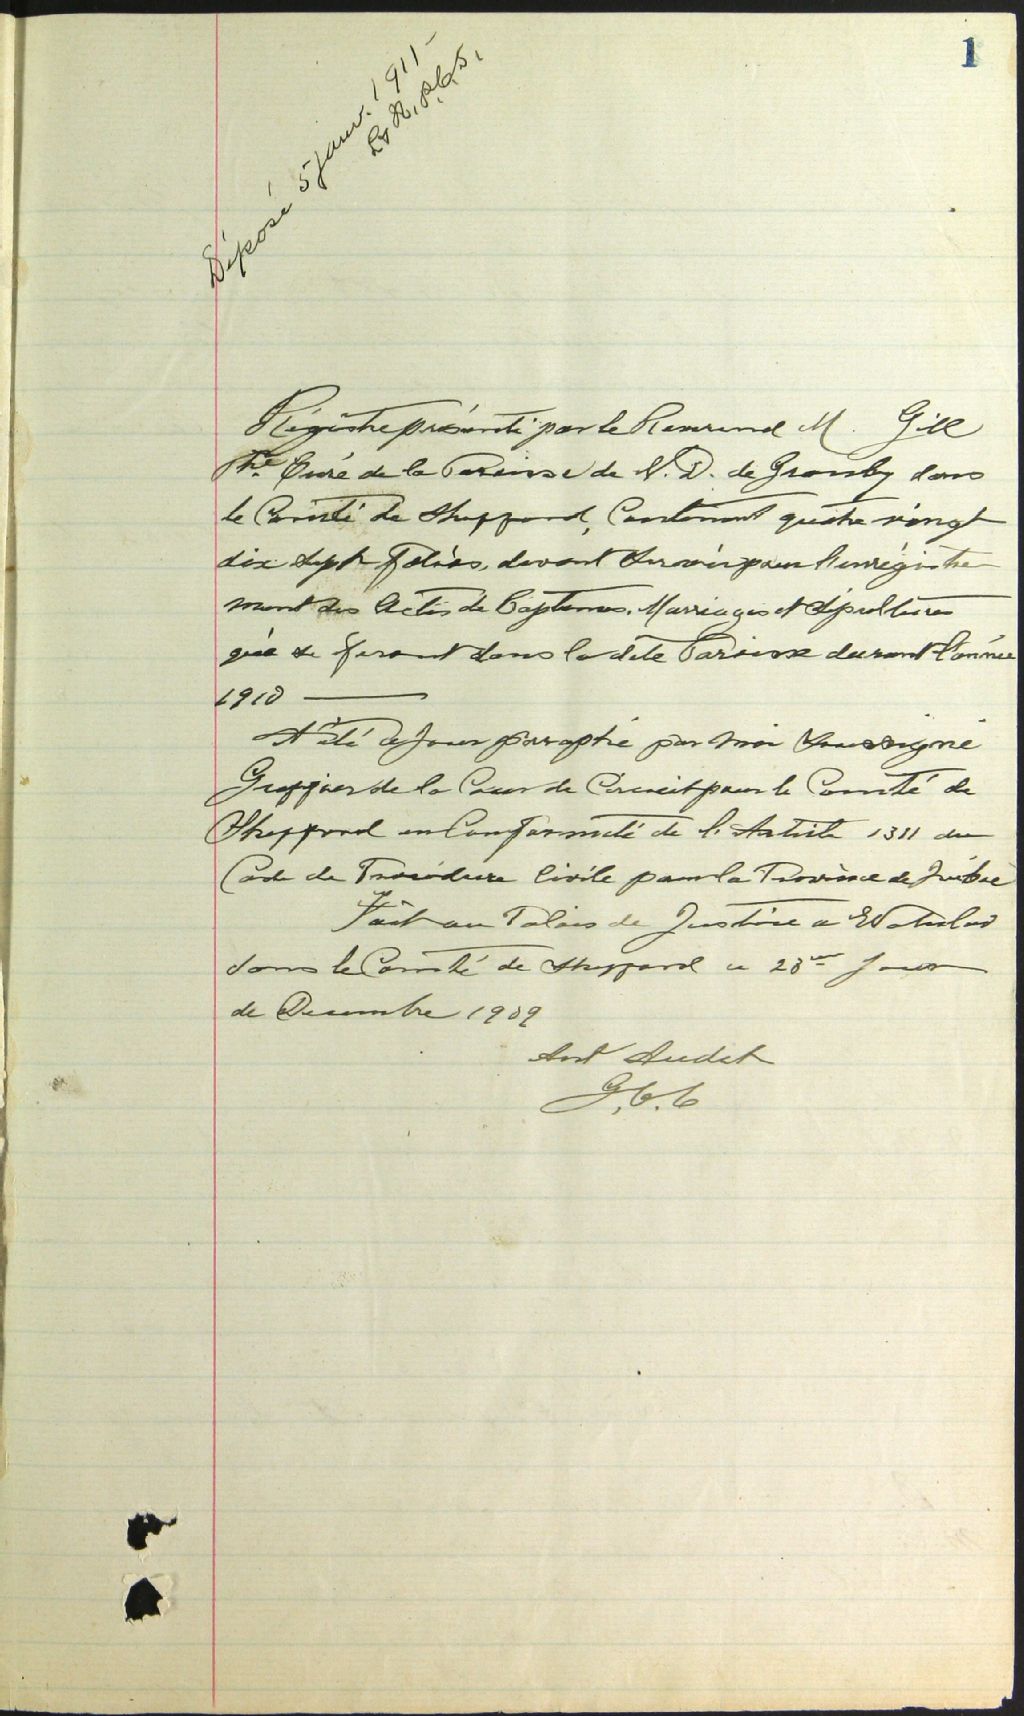 1
Déposé 5 janv. 1911
Régistre présenté par le Reverend M. Gill
Ptre Curé de la Paroisse de N. D. de Granby dans
le Comté de Shefford, Contenant quatre vingt
dix sept folios, devant servir pour l'enrégistre
ment des Actes de Baptemes, Marriages et Sépultures
qui se feront dans la dite Paroisse durant l'année
1910
A été ce jour parraphé par moi Soussigné
Greffier de la Cour de Circuit pour le Comté de
Shefford en Conformité de l'Article 1311 du
Code de Procédure Civile pour la Province de Québec
Fait au Palais de Justice a Waterloo
dans le Comté de Shefford ce 28me jour
de Decembre 1909
Ant Audet
G.C.C